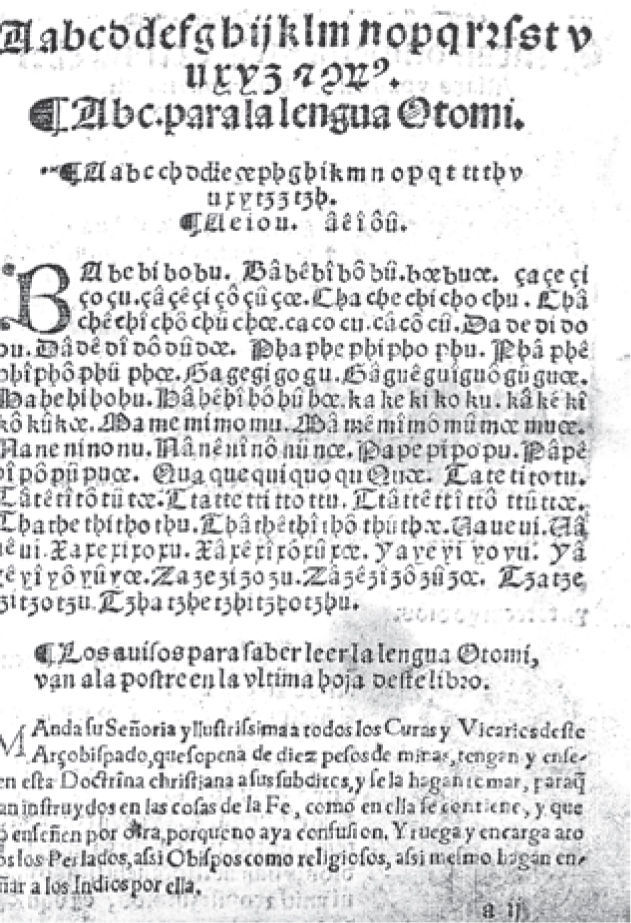 Aabcddefghijklmnopqrꝛſstv
uxyʒ ⁊ꝯꝝꝰ.
¶Abc.para la lengua Otomi.
¶Aabcchddieœphghikmnopqttthv
uxytʒʒtʒh.
¶Aeiou. âêîôû.
BAbebibobu. Bâbêbîbôbû.bœbuœ. çaçeçi
çoçu.çâçêçîçôçûçœ.Chachechichochu. Châ
chêchîchôchûchœ.cacocu.câcôcû.Dadedido
du.Dâdêdîdôdûdœ. Phaphephiphophu. Phâphê
phîphôphûphœ.Gagegigogu.Gâguêguîguôgûguœ.
Hahehihohu.Hâhêhîhôhûhœ.kakekikoku.kâkêkî
kôkûkœ.Mamemimomu.Mâmêmîmômûmœmuœ.
Naneninonu.Nânênînônûnœ.Papepipopu.Pâpê
pîpôpûpuœ. QuaquequiquoquQuœ. Tatetitotu.
Tâtêtîtôtûtœ.Ttattettittottu.Ttâttêttîttôttûttœ.
Thathethithothu.Thâthêthîthôthûthœ.Uaueui.Uâ
uêui.Xaxexixoxu.Xâxêxîxôxûxœ.Yayeyiyoyu. Yâ
yêyîyôyûyœ.Zaʒeʒiʒoʒu.Zâʒêʒîʒôʒûʒœ. Tʒatʒe
ʒitʒotʒu.Tʒhatʒhetʒhitʒhotʒhu.
¶Los auiſos para ſaber leer la lengua Otomi,
van ala poſtre en la vltima hoja deſte libro.
MAnda ſu Señoria yIluſtriſsima a todos los Curas y Vicarios deſte
Arçobiſpado, que ſo pena de diez peſos de minas, tengan y enſe-
en eſta Doctrina chriſtiana a ſus ſubditos, y ſe la hagan tomar, paraq̃
an inſtruydos en las coſas de la Fe, como en ella ſe contiene, y que
o enſeñen por otra, porque no aya confuſion. Y ruega y encarga ato
os los Perlados, aſsi Obiſpos como religioſos, aſsi meſmo hagan en-
ñar a los Indios por ella.
a ij